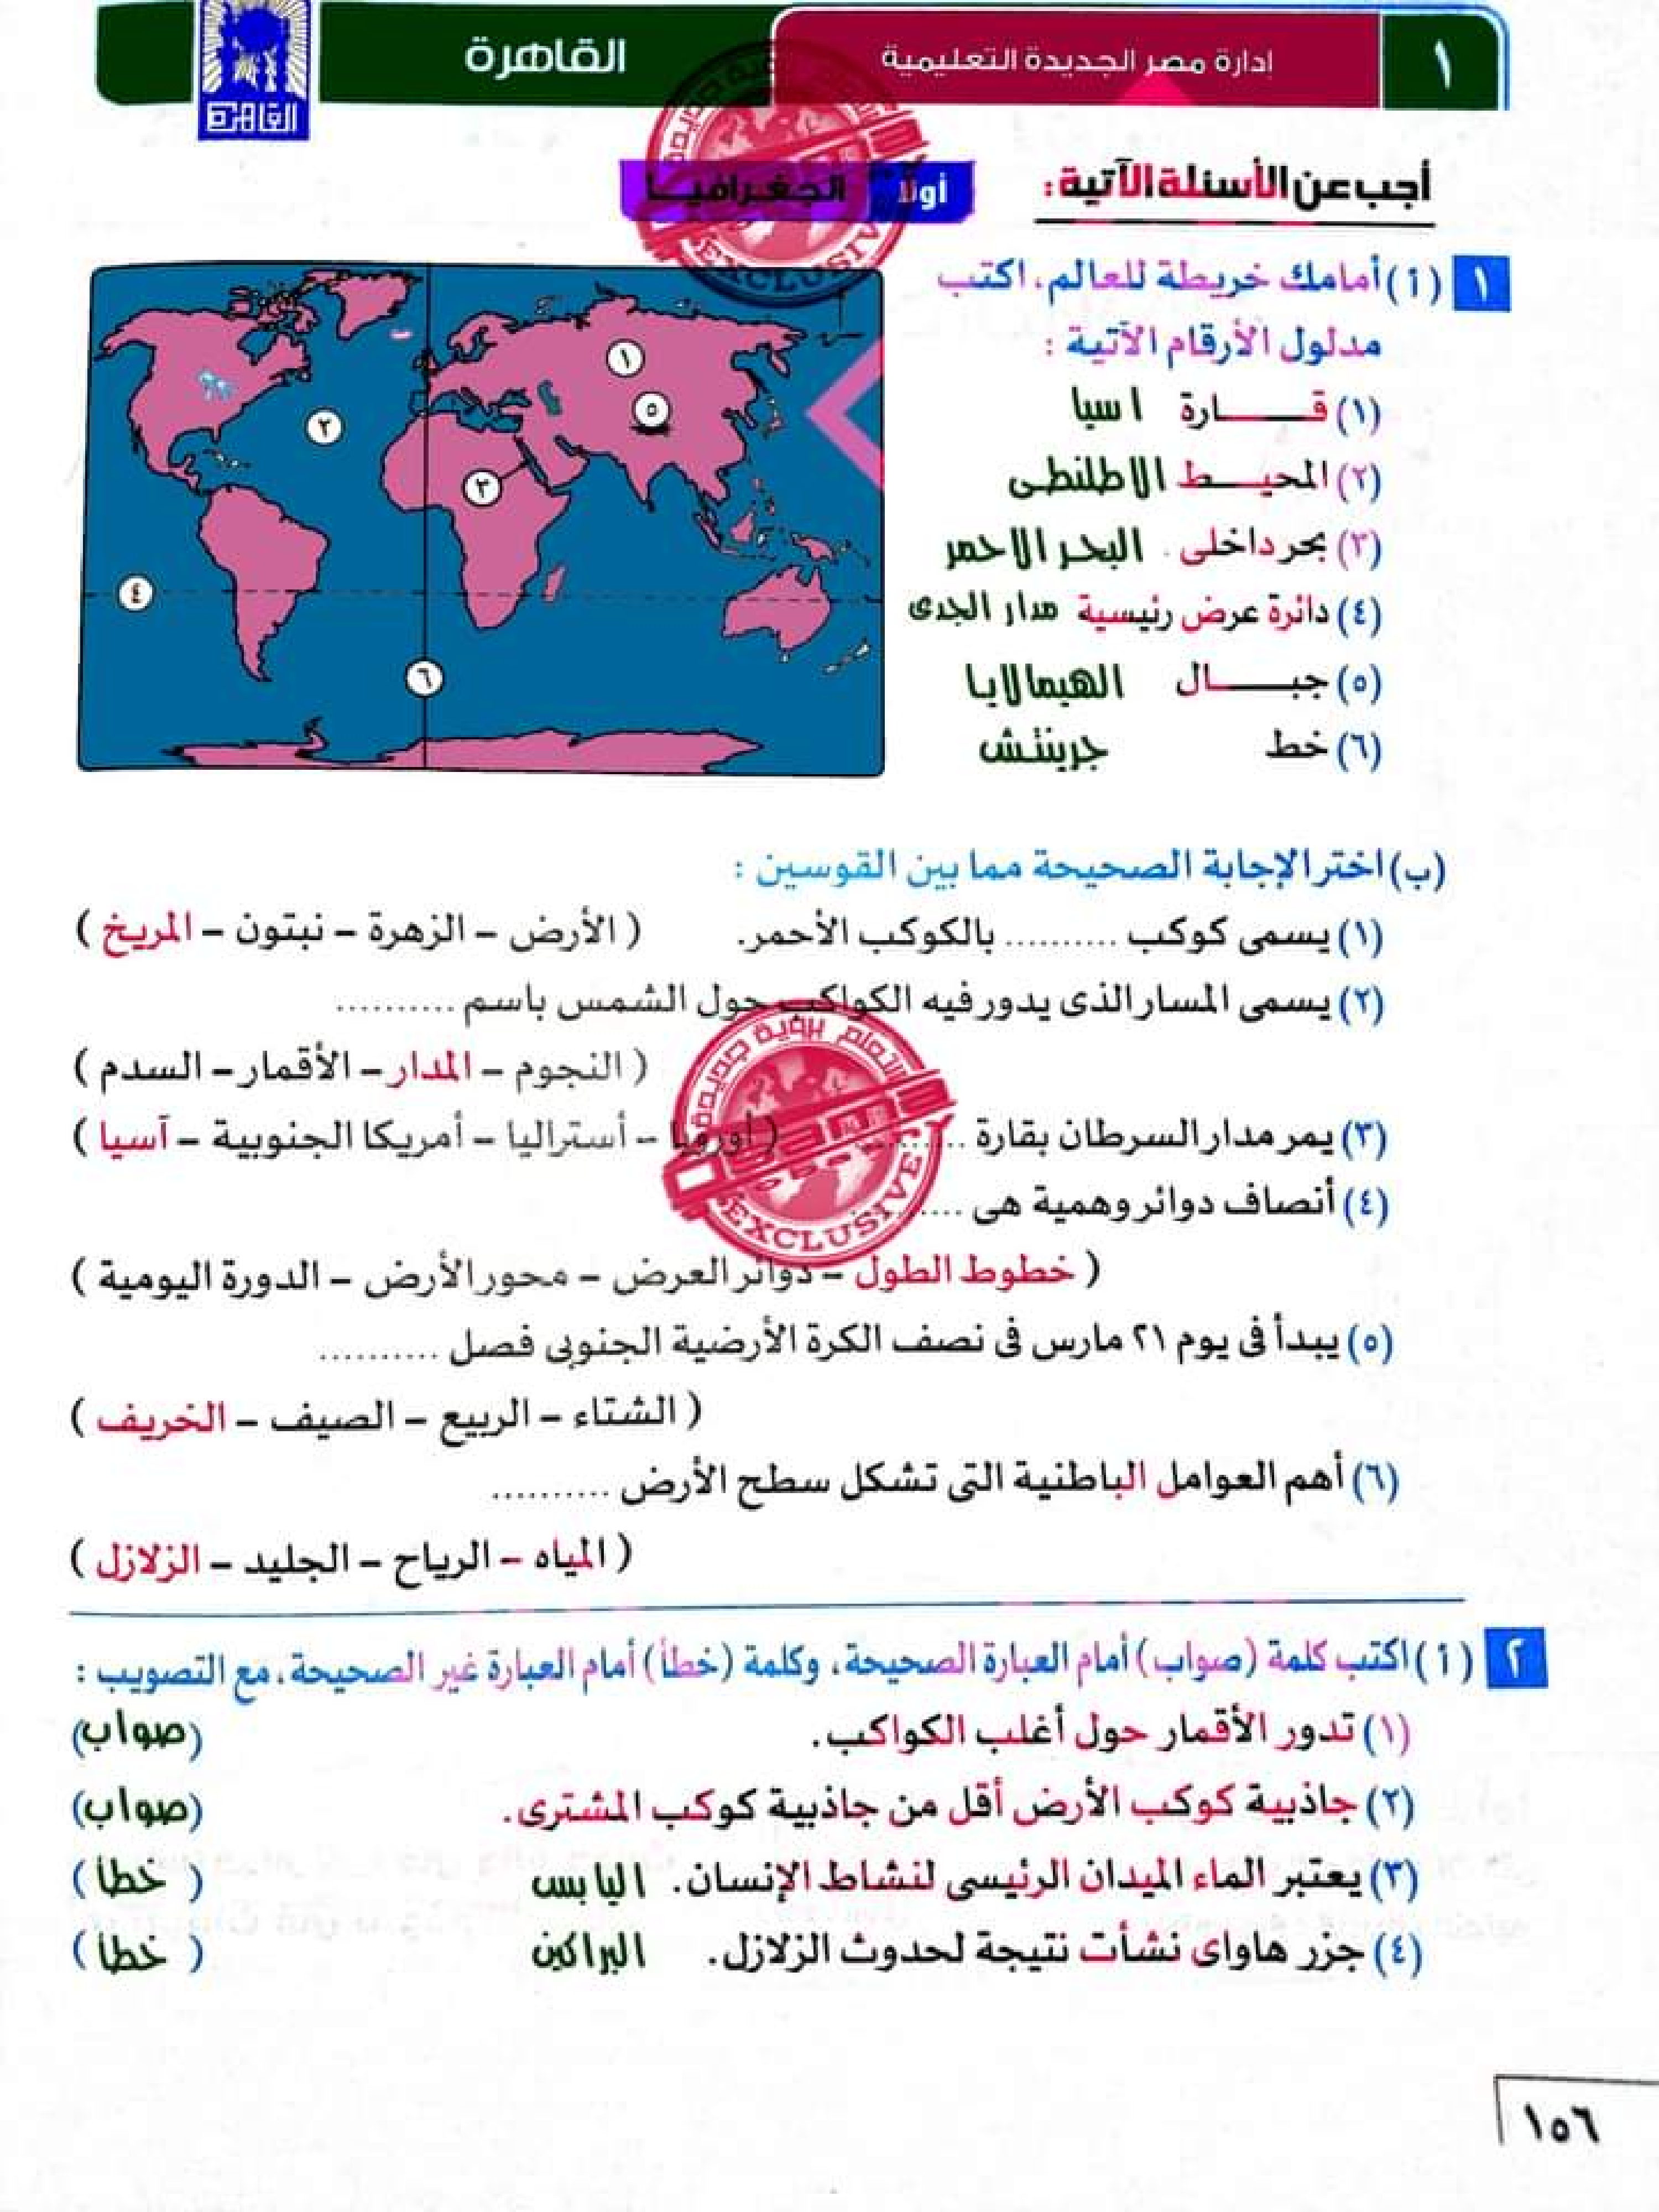 ١
إدارة مصر الجديدة التعليمية
القاهرة
القاهرة
أجب عن الأسئلة الآتية :
أولًا الجغرافيا
١ (أ) أمامك خريطة للعالم، اكتب
مدلول الأرقام الآتية :
(١) قــــارة اسيا
(٢) المحيــط الاطلنطى
(٣) بحر داخلى . البحر الاحمر
(٤) دائرة عرض رئيسية مدار الجدى
(٥) جبــــال الهيمالايا
(٦) خط جرينتش
١
٢
٣
٤
٥
٦
(ب) اختر الإجابة الصحيحة مما بين القوسين :
(١) يسمى كوكب .......... بالكوكب الأحمر. ( الأرض – الزهرة – نبتون – المريخ )
(٢) يسمى المسار الذى يدور فيه الكواكب حول الشمس باسم ..........
( النجوم – المدار – الأقمار – السدم )
(٣) يمر مدار السرطان بقارة .......... ( أوروبا – أستراليا – أمريكا الجنوبية – آسيا )
(٤) أنصاف دوائر وهمية هى ..........
( خطوط الطول – دوائر العرض – محور الأرض – الدورة اليومية )
(٥) يبدأ فى يوم ٢١ مارس فى نصف الكرة الأرضية الجنوبى فصل ..........
( الشتاء – الربيع – الصيف – الخريف )
(٦) أهم العوامل الباطنية التى تشكل سطح الأرض ..........
( المياه – الرياح – الجليد – الزلازل )
٢ (أ) اكتب كلمة (صواب) أمام العبارة الصحيحة، وكلمة (خطأ) أمام العبارة غير الصحيحة، مع التصويب :
(١) تدور الأقمار حول أغلب الكواكب. (صواب)
(٢) جاذبية كوكب الأرض أقل من جاذبية كوكب المشترى. (صواب)
(٣) يعتبر الماء الميدان الرئيسى لنشاط الإنسان. اليابس ( خطأ )
(٤) جزر هاواى نشأت نتيجة لحدوث الزلازل. البراكين ( خطأ )
١٥٦
EXCLUSIVE
EXCLUSIVE